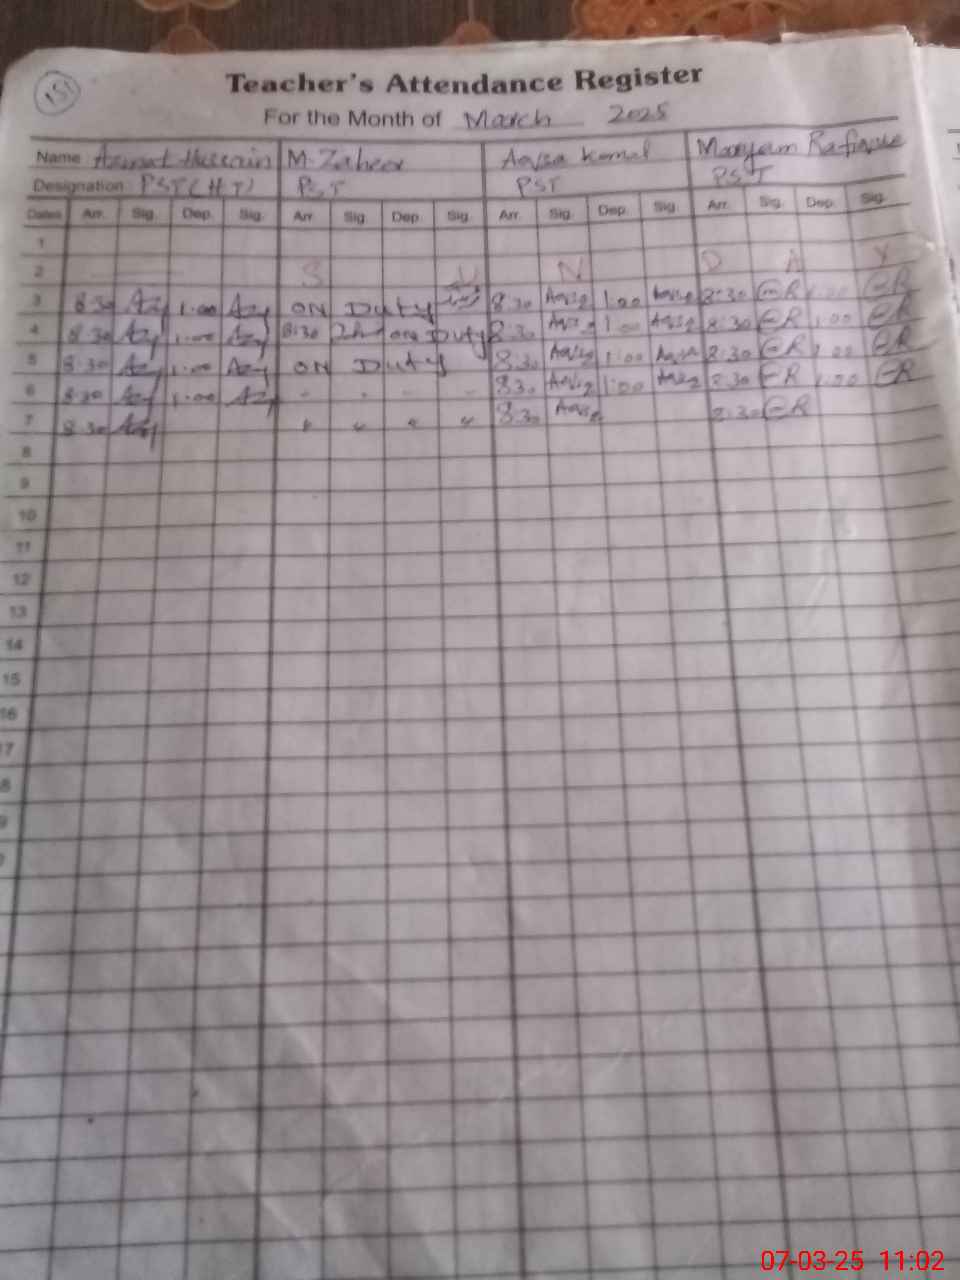 151
Teacher's Attendance Register
For the Month of March 2025
Name Azmat Hussain M. Zaheer Aqsa Komal Maryam Rafique
Designation PST (H.T) PST PST PST
Dates Arr. Sig. Dep. Sig. Arr. Sig. Dep. Sig. Arr. Sig. Dep. Sig. Arr. Sig. Dep. Sig.
1
2 S U N D A Y
3 8:30 Azy 1:00 Azy ON Duty 8:30 Aqsa 1:00 Aqsa 8:30 R 1:00 R
4 8:30 Azy 1:00 Azy 8:30 on Duty 8:30 Aqsa 1:00 Aqsa 8:30 R 1:00 R
5 8:30 Azy 1:00 Azy ON Duty 8:30 Aqsa 1:00 Aqsa 8:30 R 1:00 R
6 8:30 Azy 1:00 Azy - - - - 8:30 Aqsa 1:00 Aqsa 8:30 R 1:00 R
7 8:30 Azy " " " " 8:30 Aqsa 8:30 R
8
9
10
11
12
13
14
15
16
17
8
9
07-03-25 11:02